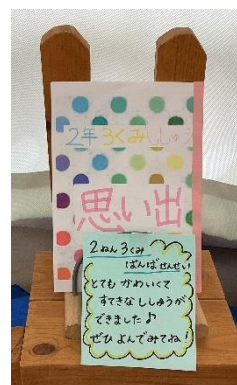 2年3くみししゅう
思い出
2ねん3くみ
ばんばせんせい
とても かわいくて
すてきな ししゅうが
できました♪
ぜひ よんでみてね!